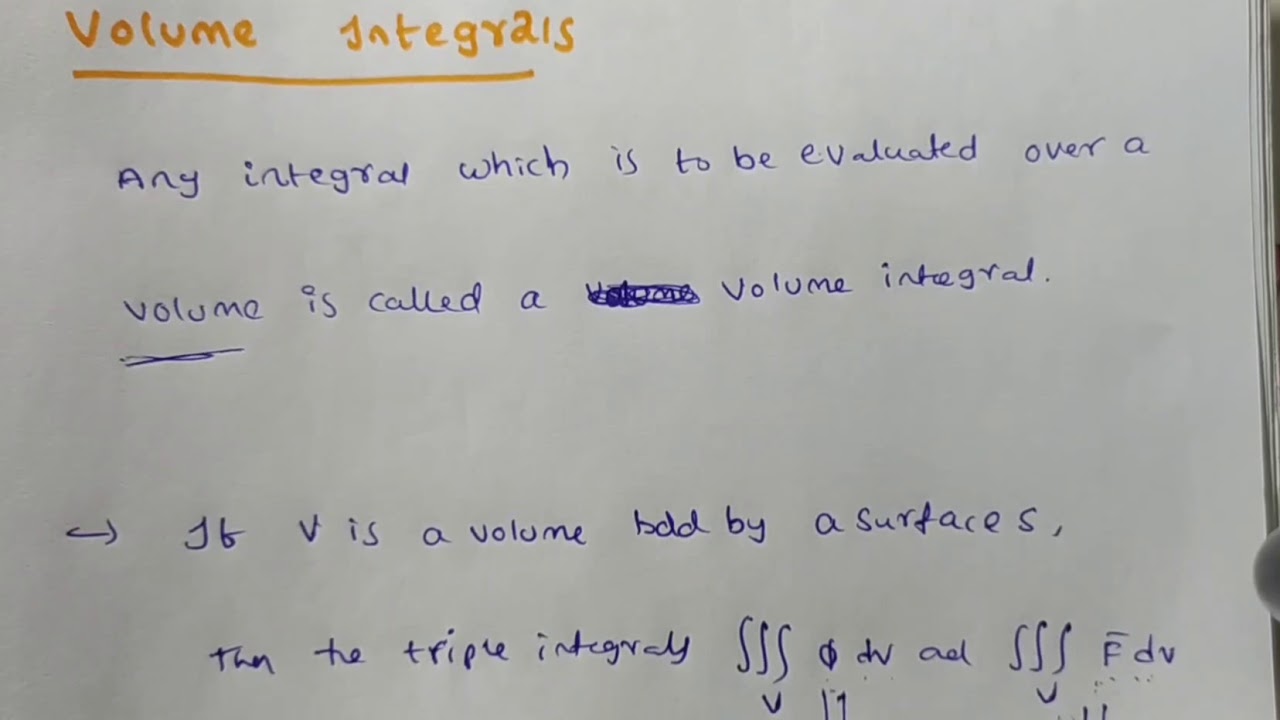 Volume Integrals
Any integral which is to be evaluated over a
volume is called a volume integral.
↪ If V is a volume bdd by a surface S,
Then the triple integrals ∭ φ dv ad ∭ F̄ dv
V V